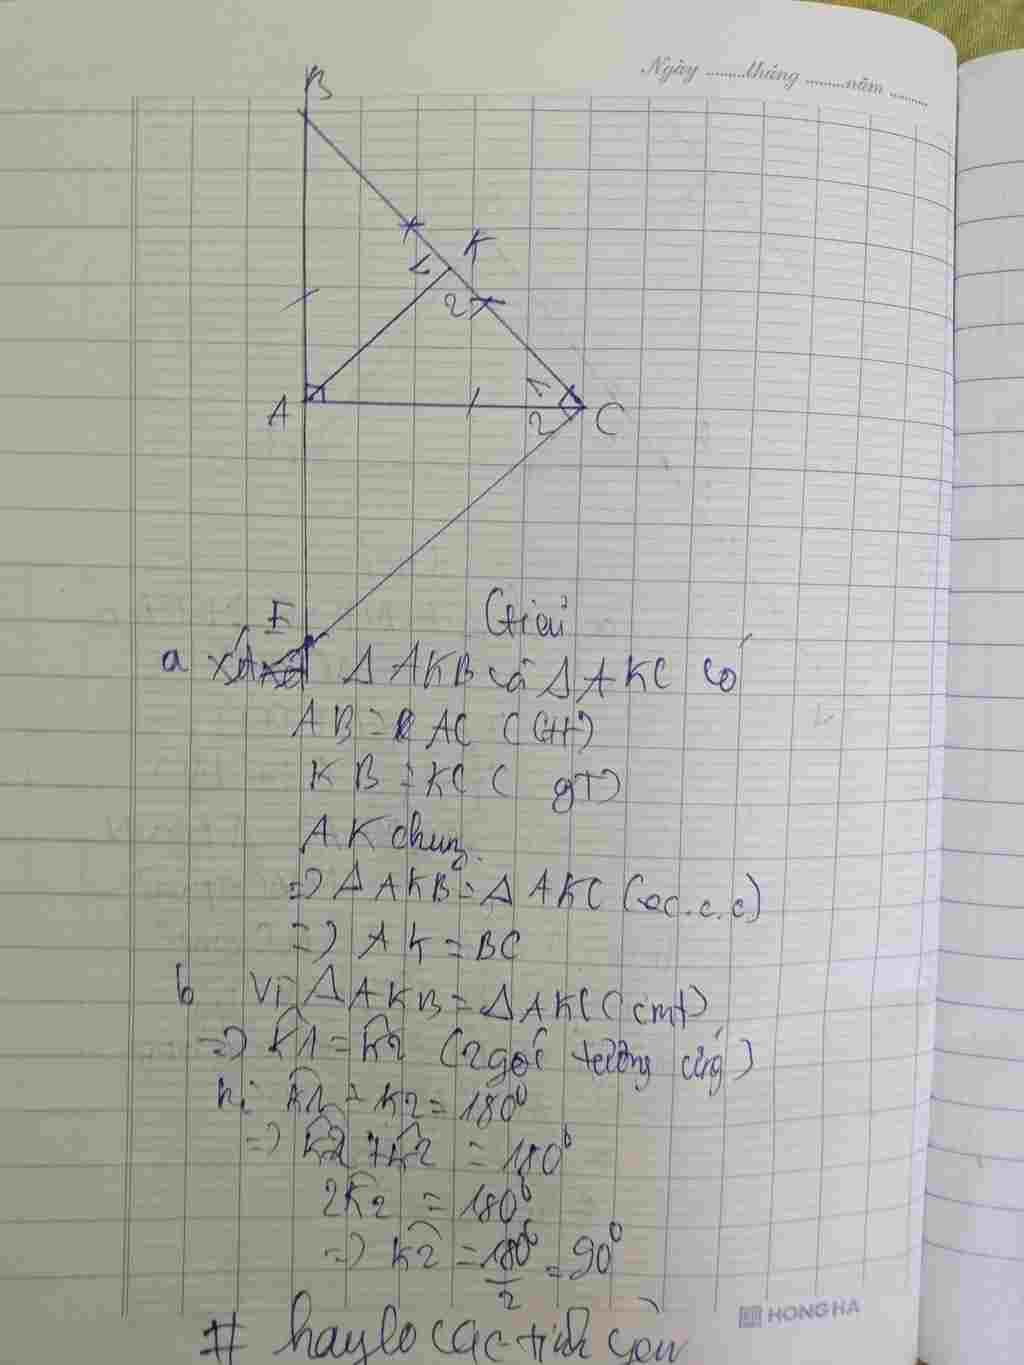 Ngày ........tháng ........năm ........
B
K
1
2
A
1
2
C
E
Giải
a Δ AKB và Δ AKC có
AB = AC (GT)
KB = KC ( gT)
AK chung
=> Δ AKB = Δ AKC (c.c.c)
=> AK = BC
b Vì Δ AKB = Δ AKC (cmt)
=> K1 = K2 (2 góc tương ứng)
K1 + K2 = 180⁰
=> K2 + K2 = 180⁰
2K2 = 180⁰
=> K2 = 180⁰/2 = 90⁰
HONG HA
#